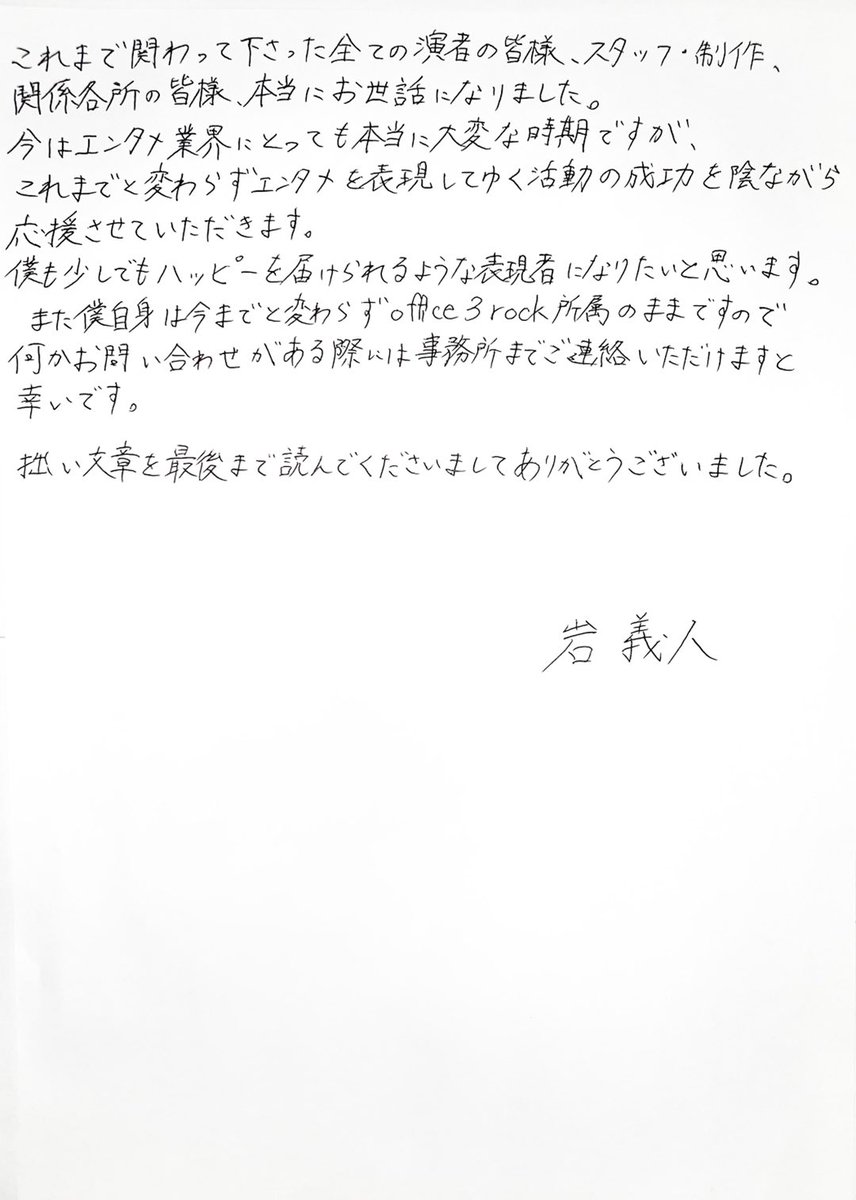 これまで関わって下さった全ての演者の皆様、スタッフ・制作、
関係各所の皆様、本当にお世話になりました。
今はエンタメ業界にとっても本当に大変な時期ですが、
これまでと変わらずエンタメを表現してゆく活動の成功を陰ながら
応援させていただきます。
僕も少しでもハッピーを届けられるような表現者になりたいと思います。
また僕自身は今までと変わらずoffice3rock所属のままですので
何かお問い合わせがある際には事務所までご連絡いただけますと
幸いです。
拙い文章を最後まで読んでくださいましてありがとうございました。
岩 義人